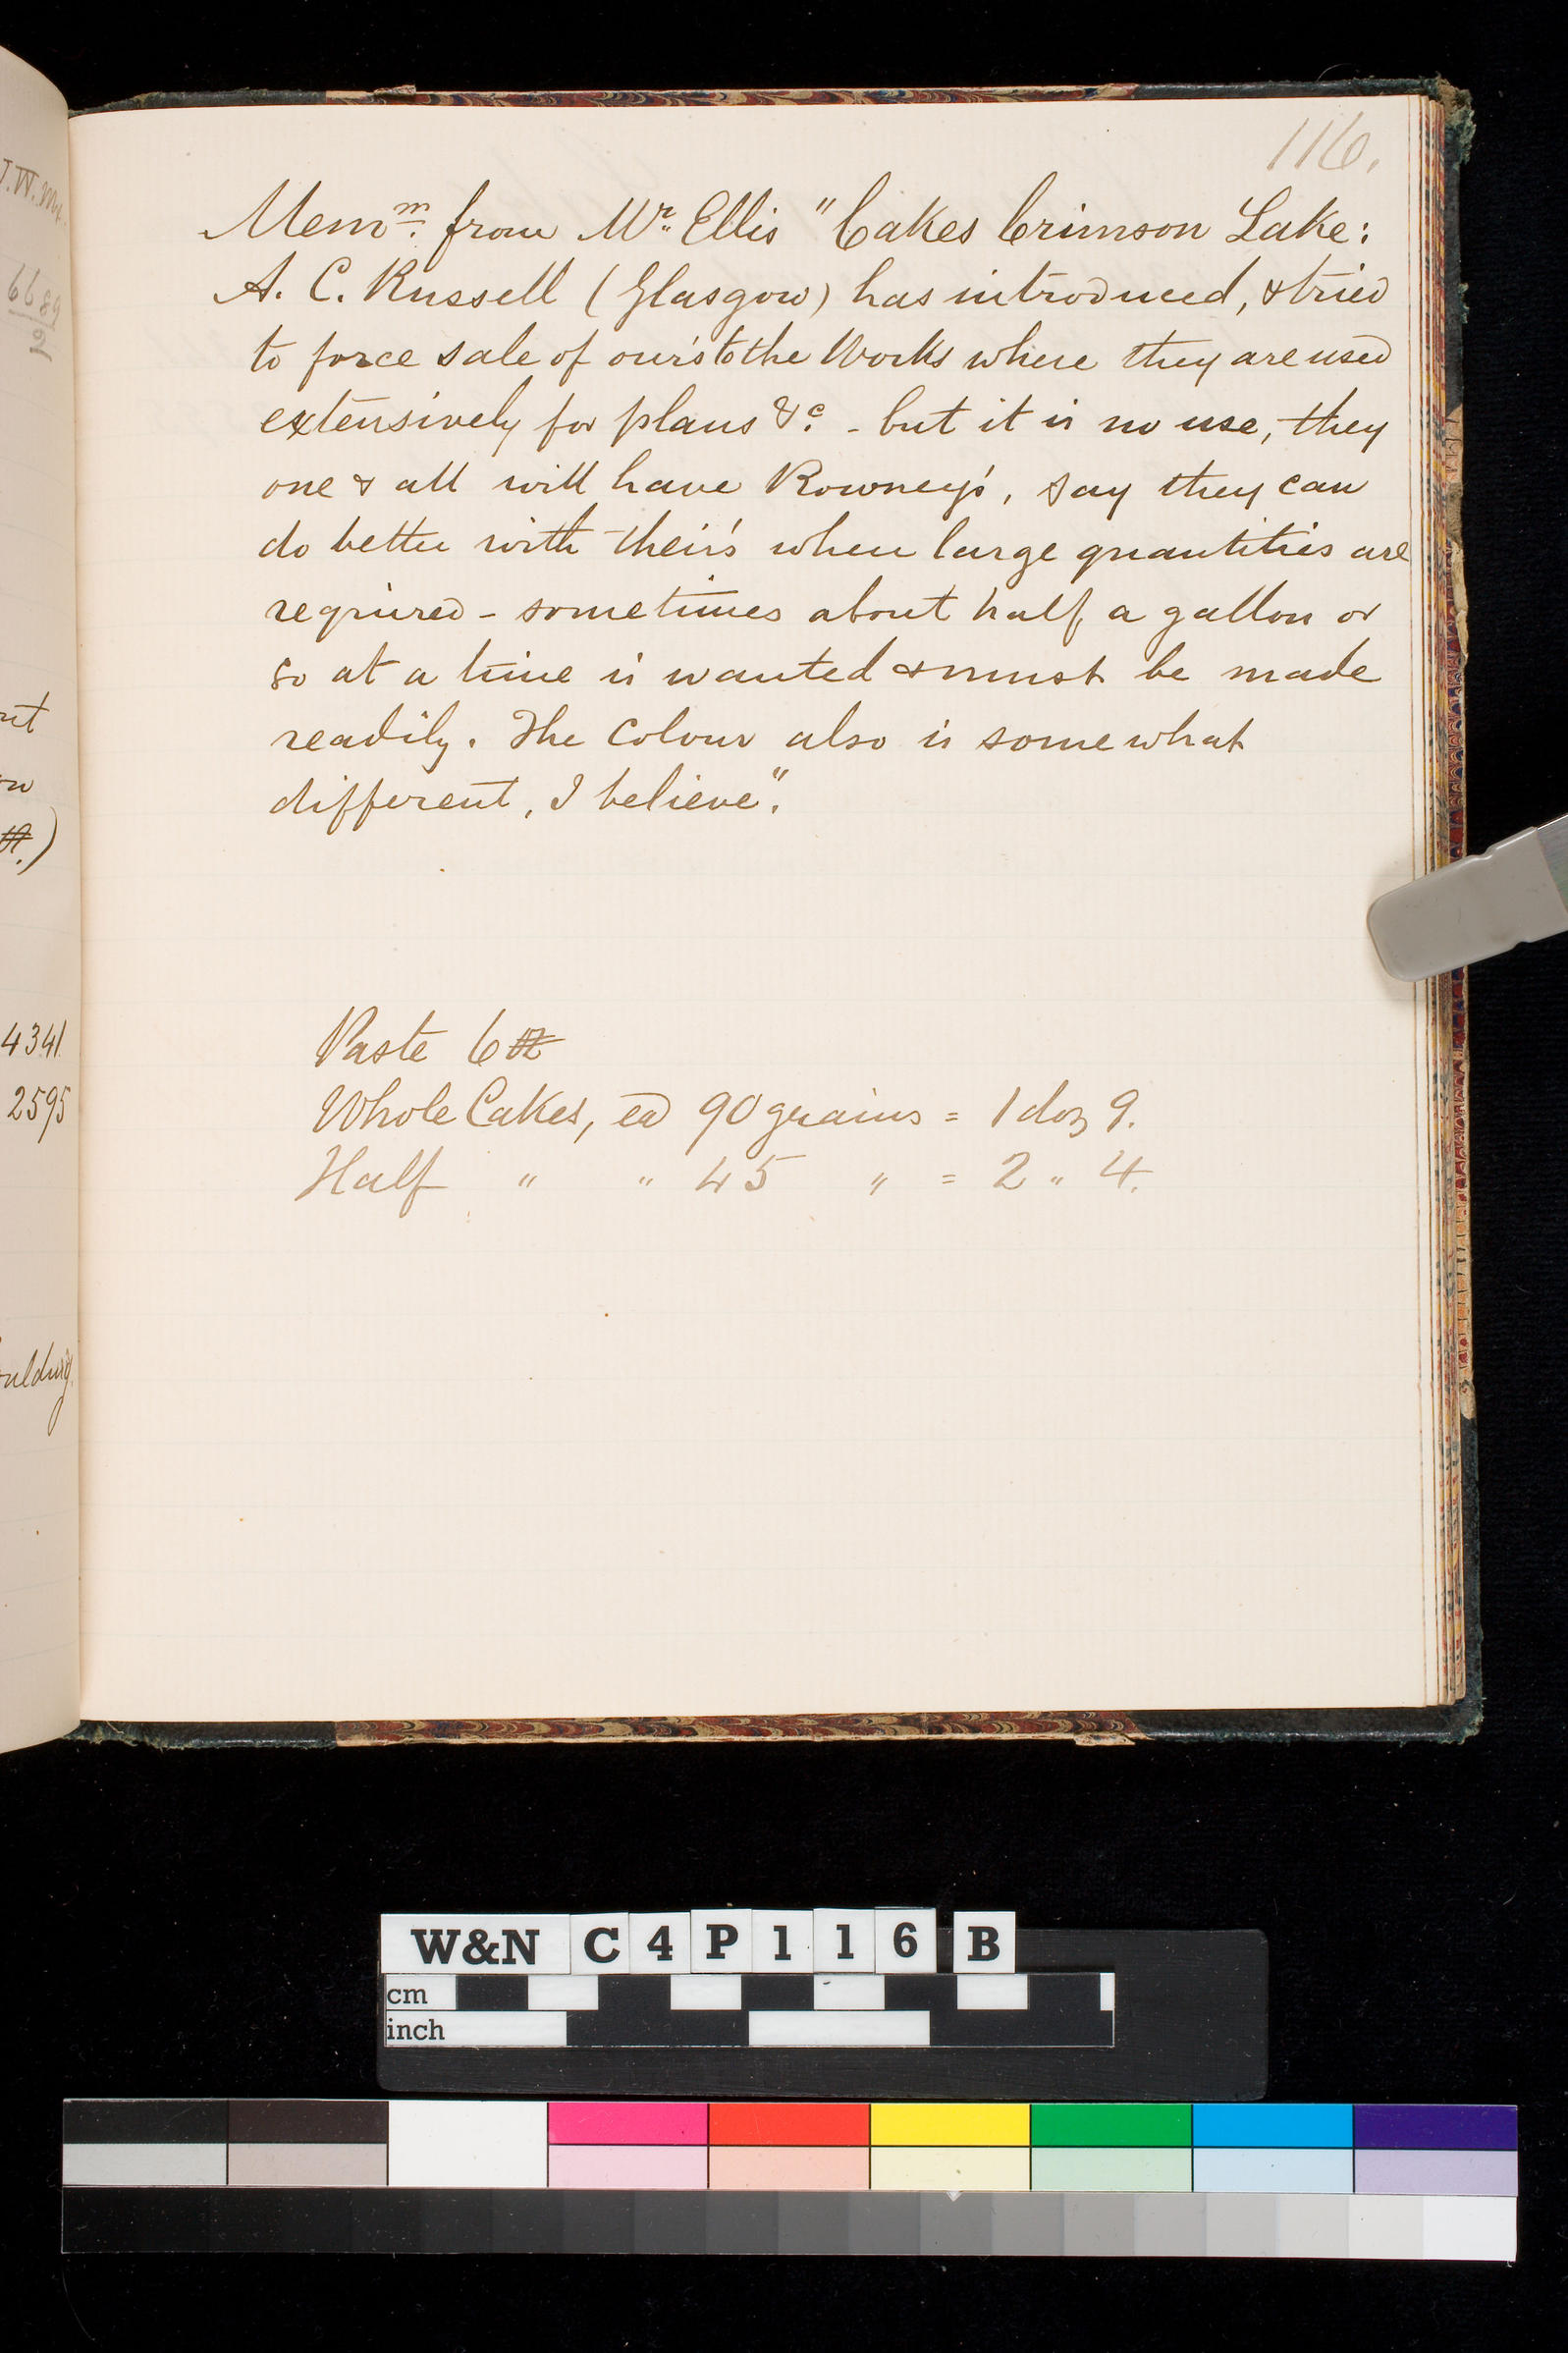 116.
Memm. from Mr. Ellis "Cakes Crimson Lake:
A. C. Russell (Glasgow) has introduced, & tried
to force sale of our's to the Works where they are used
extensively for plans &c. - but it is no use, they
one & all will have Rowney's, say they can
do better with their's when large quantities are
required - sometimes about half a gallon or
so at a time is wanted & must be made
readily. The Colour also is somewhat
different, I believe".
Paste 6 oz
Whole Cakes, ea 90 grains = 1 doz 9.
Half " " 45 " = 2 " 4.
4341
2595
W&N C4P116 B
cm
inch